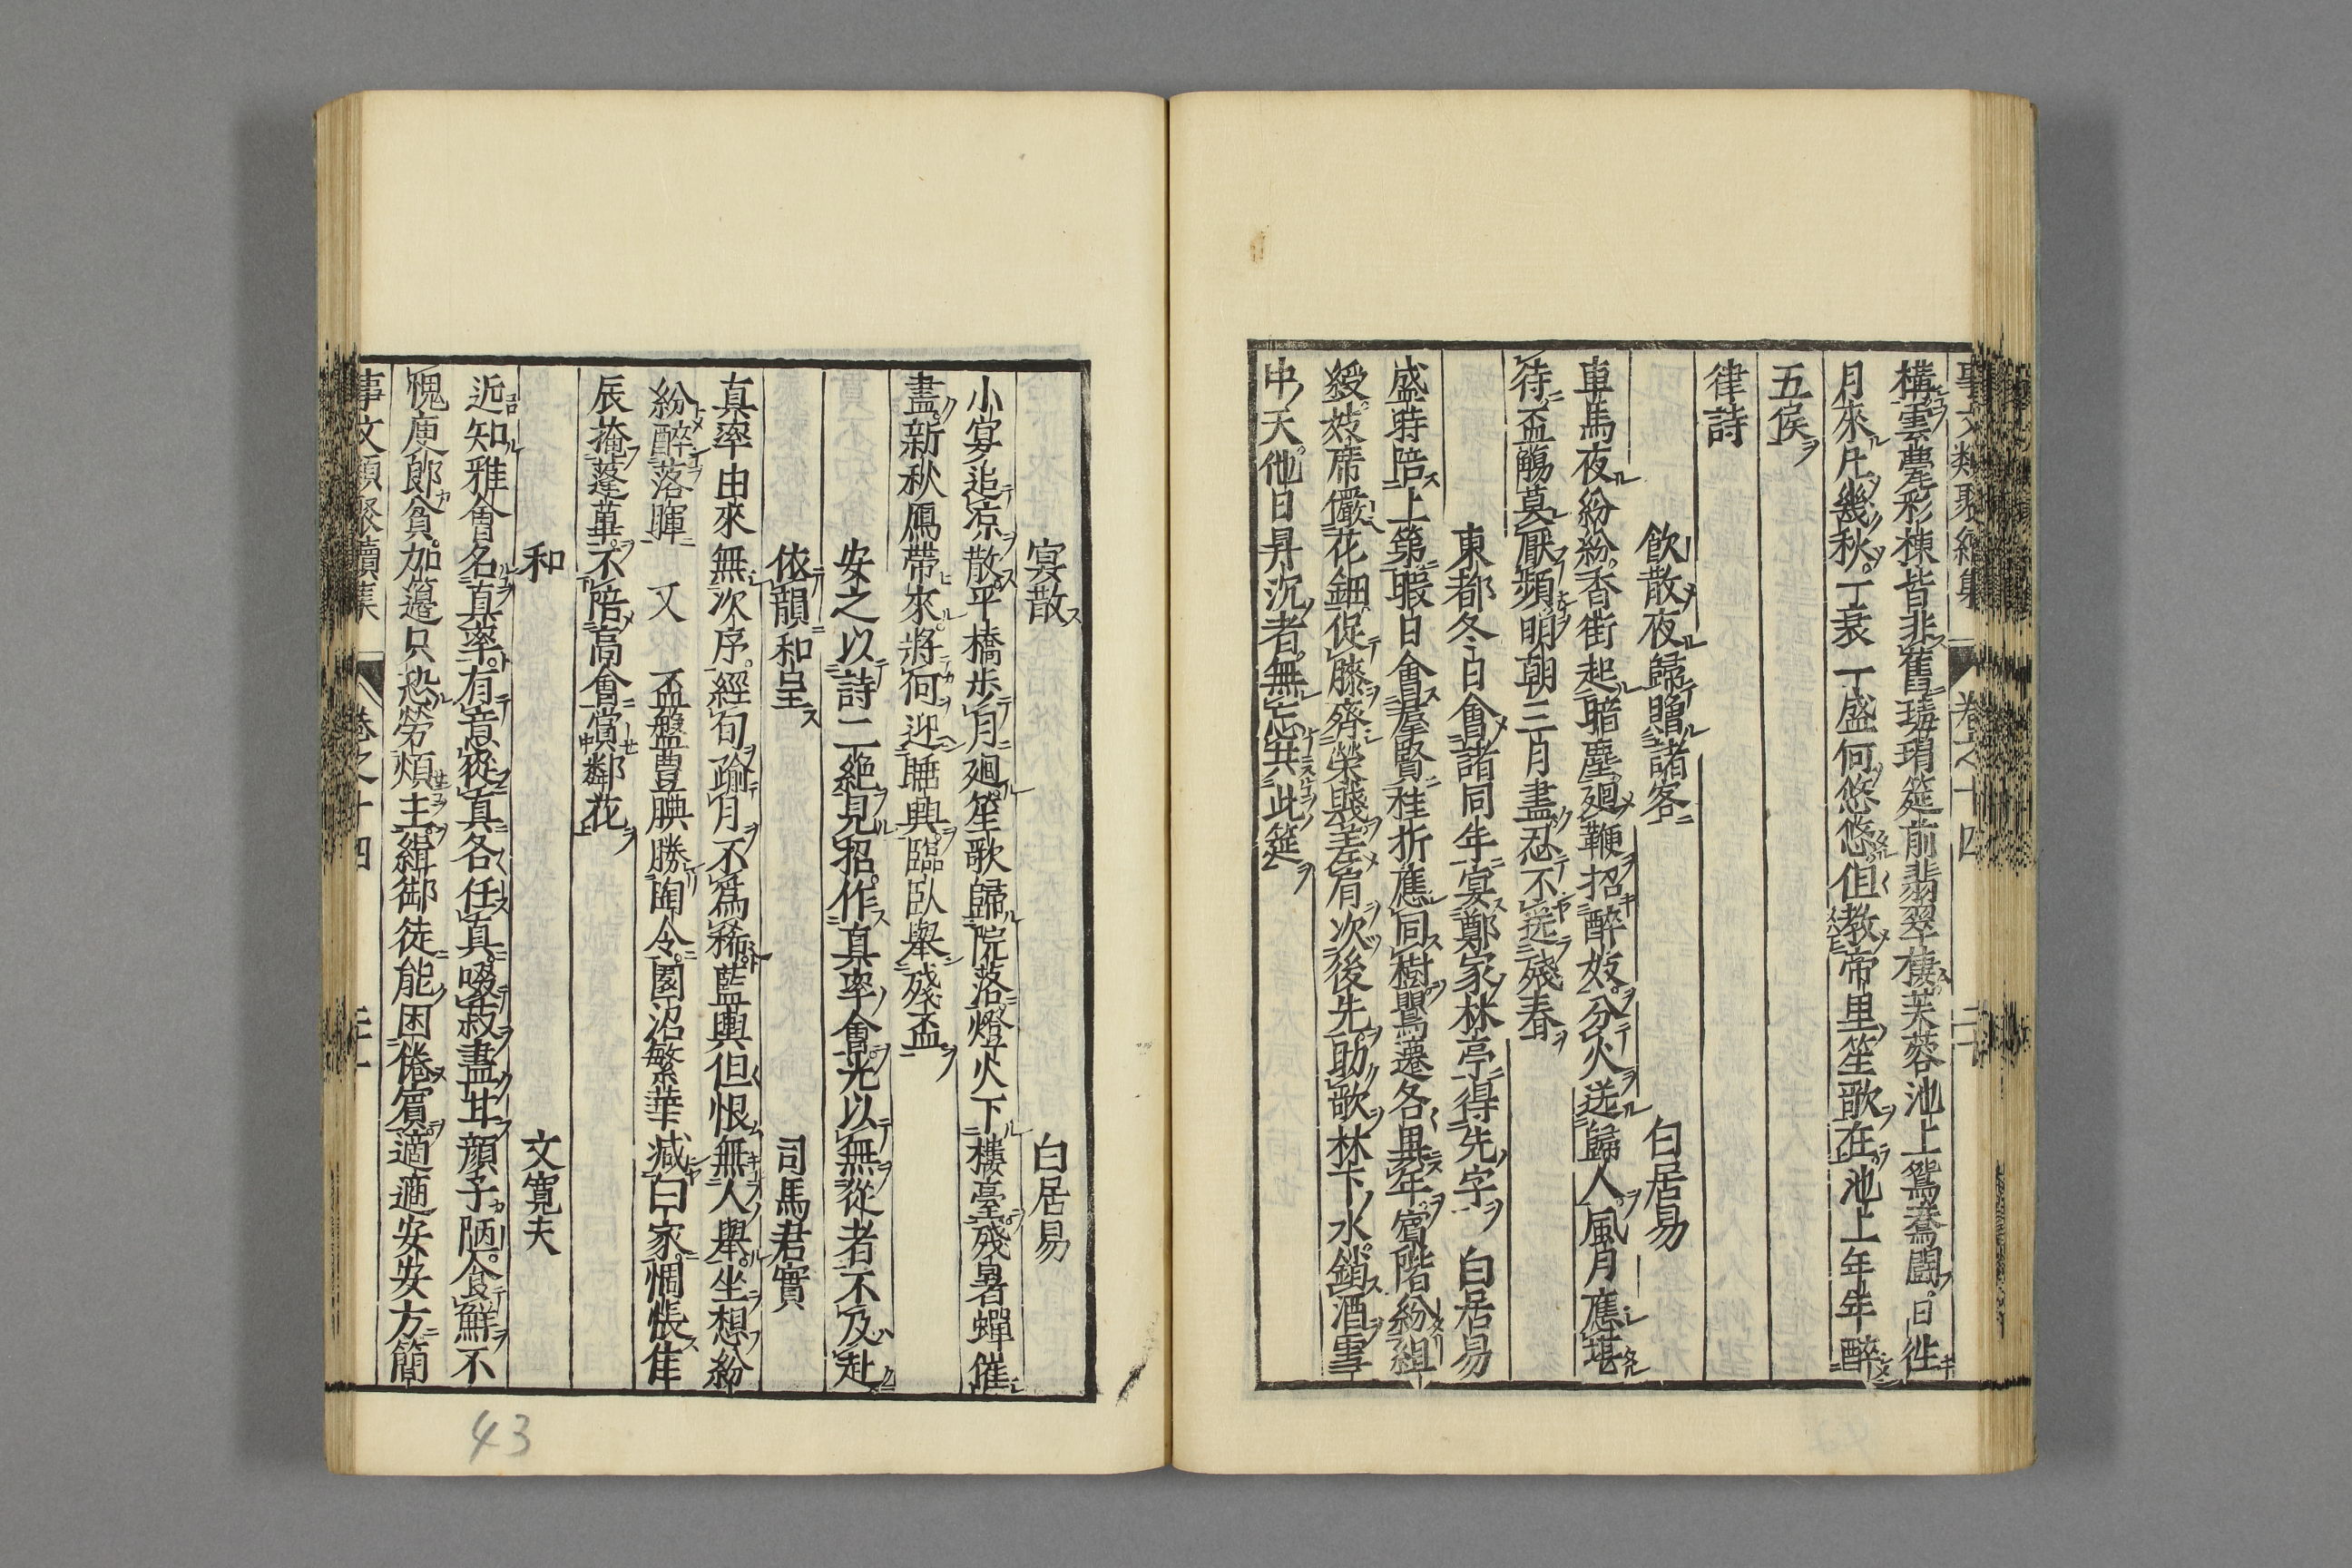 事文類聚續集 卷之十四
構雲甍彩棟皆非舊瑇瑁筵前翡翠棲芙蓉池上鴛鴦鬪日徃
月來凡幾秋一衰一盛何悠悠但教帝里笙歌在池上年年醉
五侯
律詩
飲散夜歸贈諸客 白居易
車馬夜紛紛香街起暗塵廻鞭招醉妓分火送歸人風月應堪
待盃觴莫厭頻明朝三月盡忍不送殘春
東都冬日會諸同年宴鄭家林亭得先字 白居易
盛時陪上第暇日會羣賢桂折應同樹鸎遷各異年賓階紛組
綬妓席儼花鈿促膝齊榮賤差肩次後先助歌林下水銷酒雪
中天他日昇沉者無忘共此筵
宴散 白居易
小宴追凉散平橋步月廻笙歌歸院落燈火下樓臺殘暑蟬催
盡新秋鴈帶來將何迎睡興臨臥舉殘盃
安之以詩二絶見招作真率會光以無從者不及赴
依韻和呈 司馬君實
真率由來無次序經旬踰月不爲稀藍輿但恨無人舉坐想紛
紛醉落暉 又 盃盤豊腆勝陶令園沼繁華減白家惆悵隹
辰掩蓬蓽不陪高會賞鄰花
和 文寛夫
近知雅會名真率有意從真各任真啜菽盡甘顔子陋食鮮不
愧庾郎貧加籩只恐勞煩主緝御徒能困倦賓適適安安方簡
事文類聚續集 卷之十四